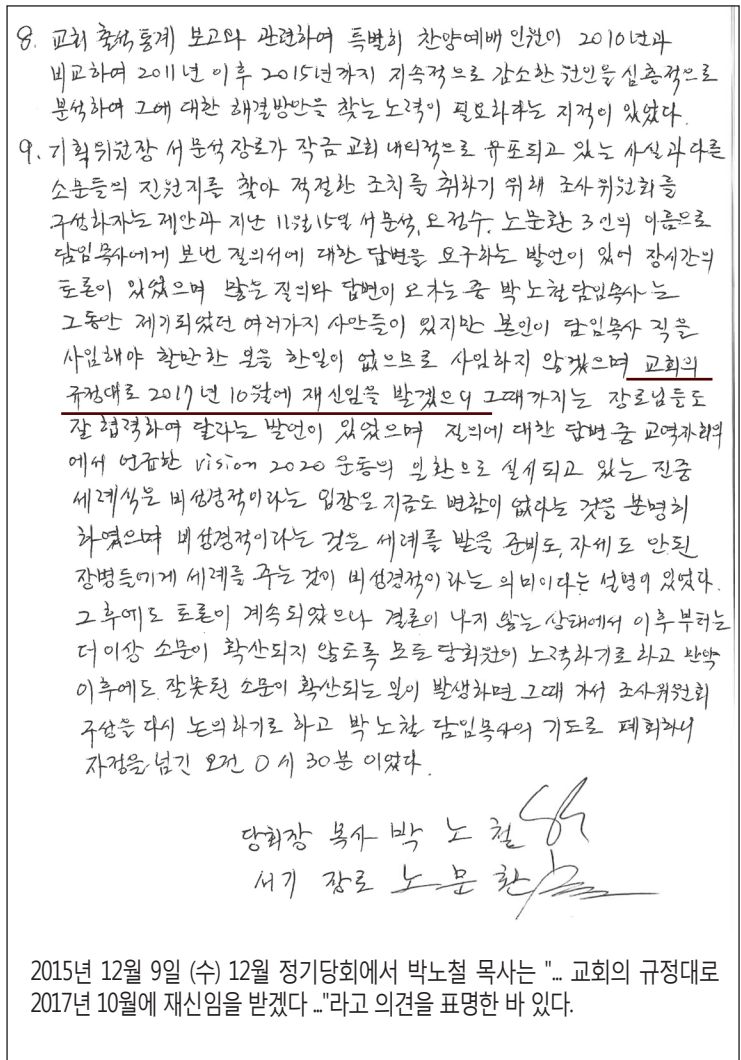 8. 교회 출석통계 보고와 관련하여 특별히 찬양예배 인원이 2010년과
비교하여 2011년 이후 2015년까지 지속적으로 감소한 원인을 심층적으로
분석하여 그에 대한 해결방안을 찾는 노력이 필요하다는 지적이 있었다.
9. 기획위원장 서문석장로가 작금 교회 내외적으로 유포되고 있는 사실과 다른
소문들의 진원지를 찾아 적절한 조치를 취하기 위해 조사위원회를
구성하자는 제안과 지난 11월15일 서문석, 오정수, 노문환 3인의 이름으로
담임목사에게 보낸 질의서에 대한 답변을 요구하는 발언이 있어 장시간의
토론이 있었으며 많은 질의와 답변이 오가는 중 박노철담임목사는
그동안 제기되었던 여러가지 사안들이 있지만 본인이 담임목사 직을
사임해야 할만한 일을 한일이 없으므로 사임하지 않겠으며 교회의
규정대로 2017년 10월에 재신임을 받겠으니 그때까지는 장로님들도
잘 협력하여 달라는 발언이 있었으며 질의에 대한 답변 중 교역자회의
에서 언급한 vision 2020 운동의 일환으로 실시되고 있는 진중
세례식은 비성경적이라는 입장은 지금도 변함이 없다는 것을 분명히
하였으며 비성경적이라는 것은 세례를 받을 준비도 자세도 안된
장병들에게 세례를 주는 것이 비성경적이라는 의미이다는 설명이 있었다.
그후에도 토론이 계속되었으나 결론이 나지 않는 상태에서 이후부터는
더이상 소문이 확산되지 않도록 모든 당회원이 노력하기로 하고 만약
이후에도 잘못된 소문이 확산되는 일이 발생하면 그때 가서 조사위원회
구성을 다시 논의하기로 하고 박노철 담임목사의 기도로 폐회하니
자정을 넘긴 오전 0시 30분 이었다.
당회장 목사 박 노 철
서기 장로 노 문 환
2015년 12월 9일 (수) 12월 정기당회에서 박노철 목사는 "... 교회의 규정대로
2017년 10월에 재신임을 받겠다 ..."라고 의견을 표명한 바 있다.